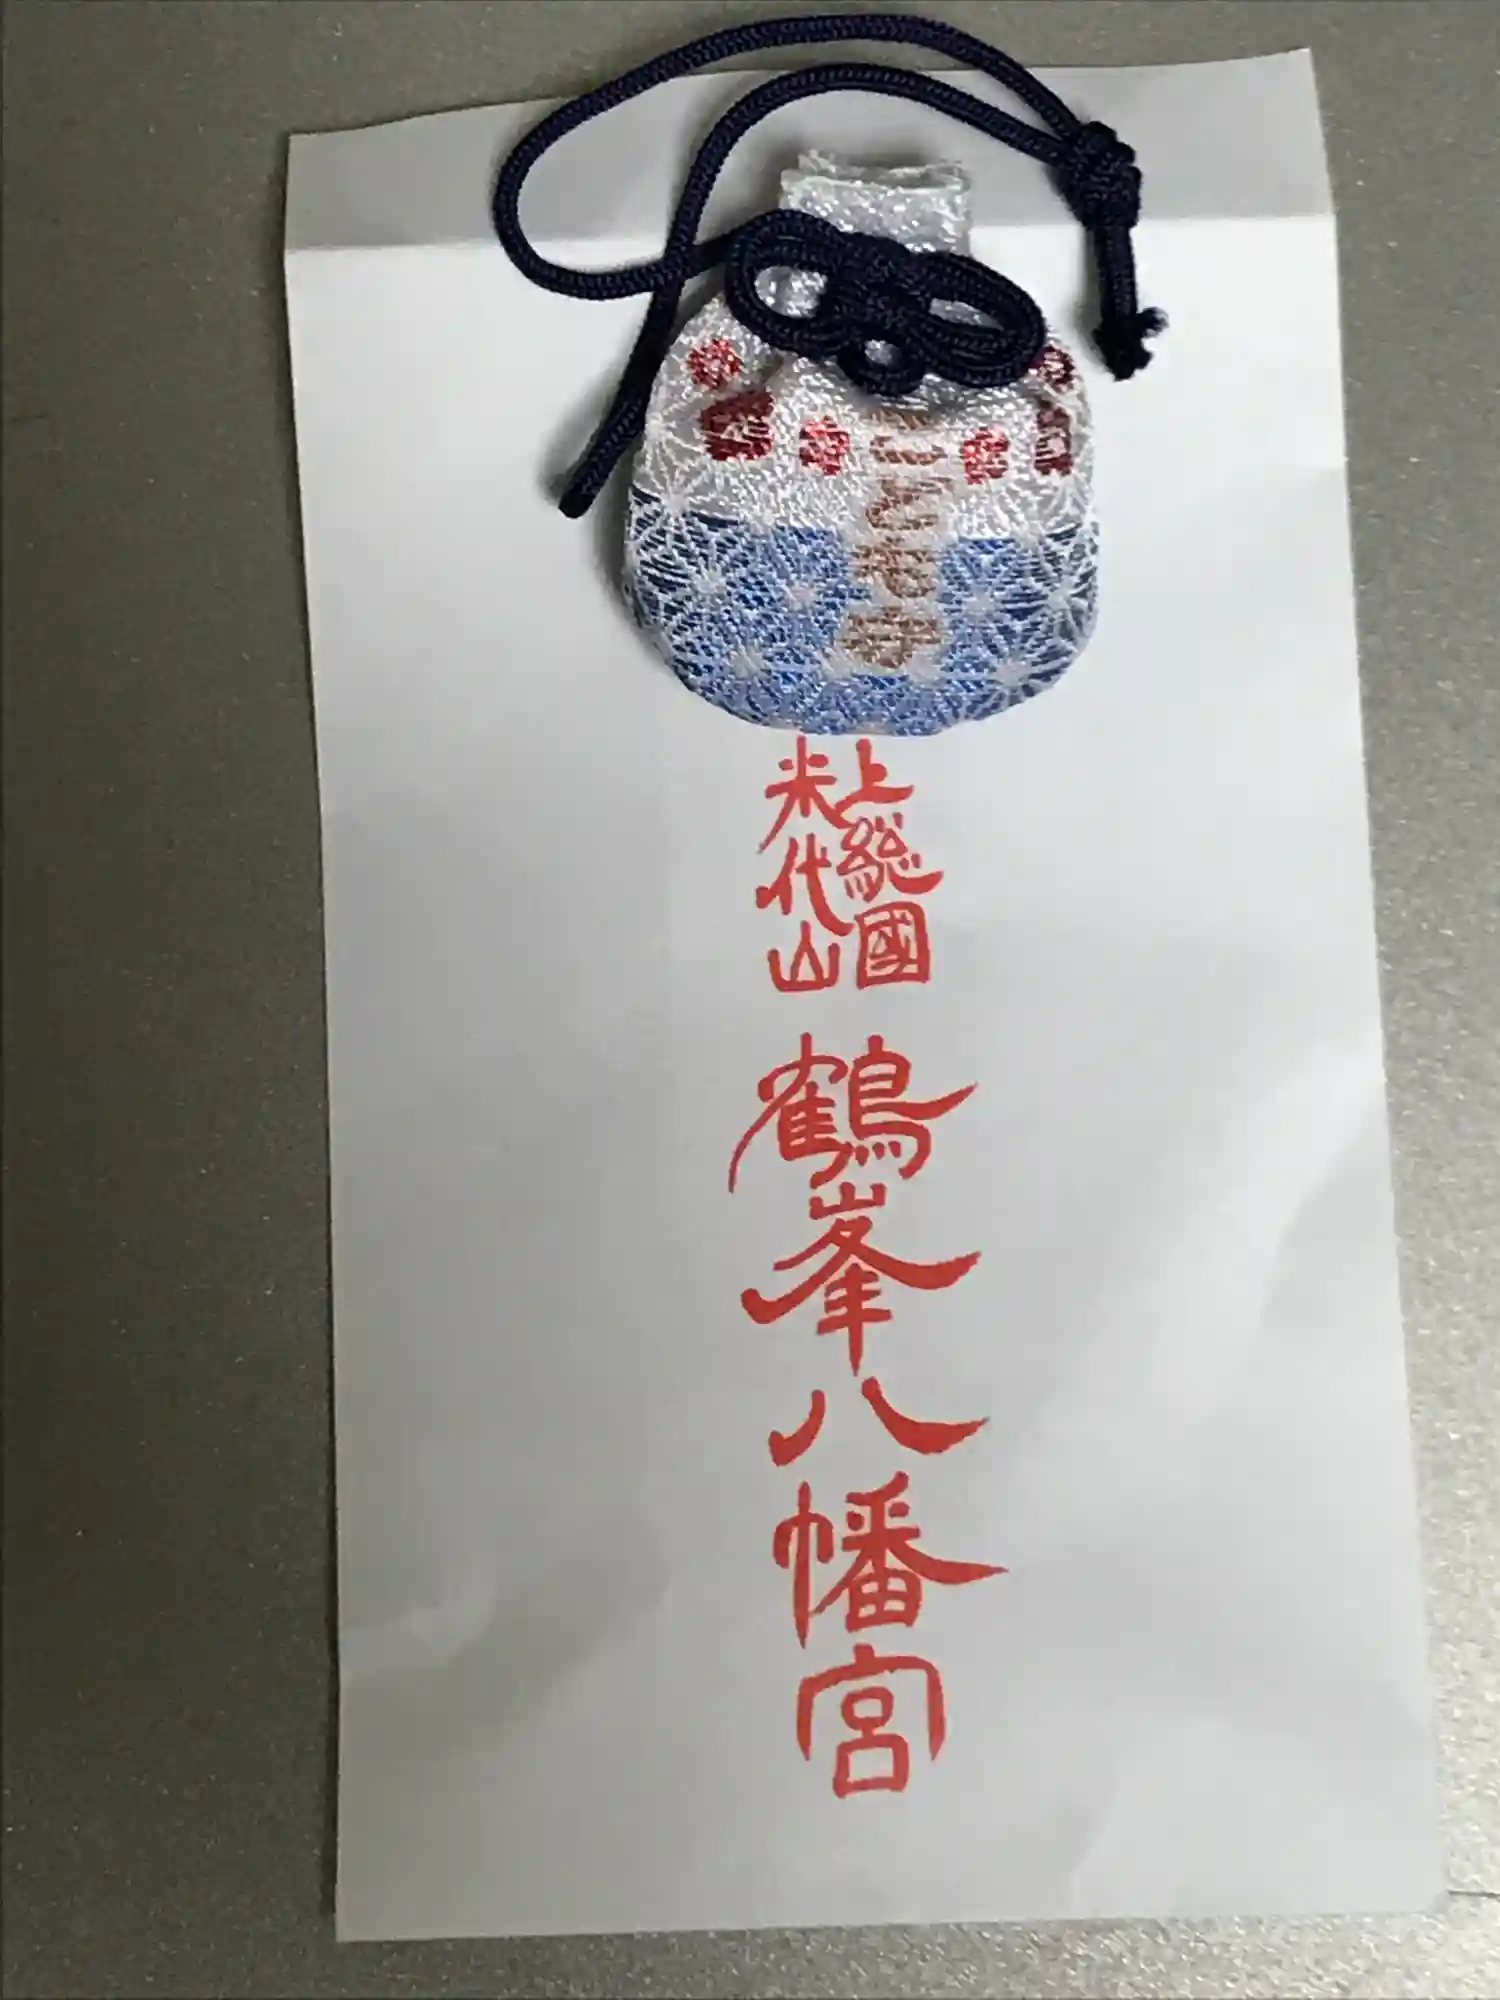 上総國
米代山
鶴峯八幡宮